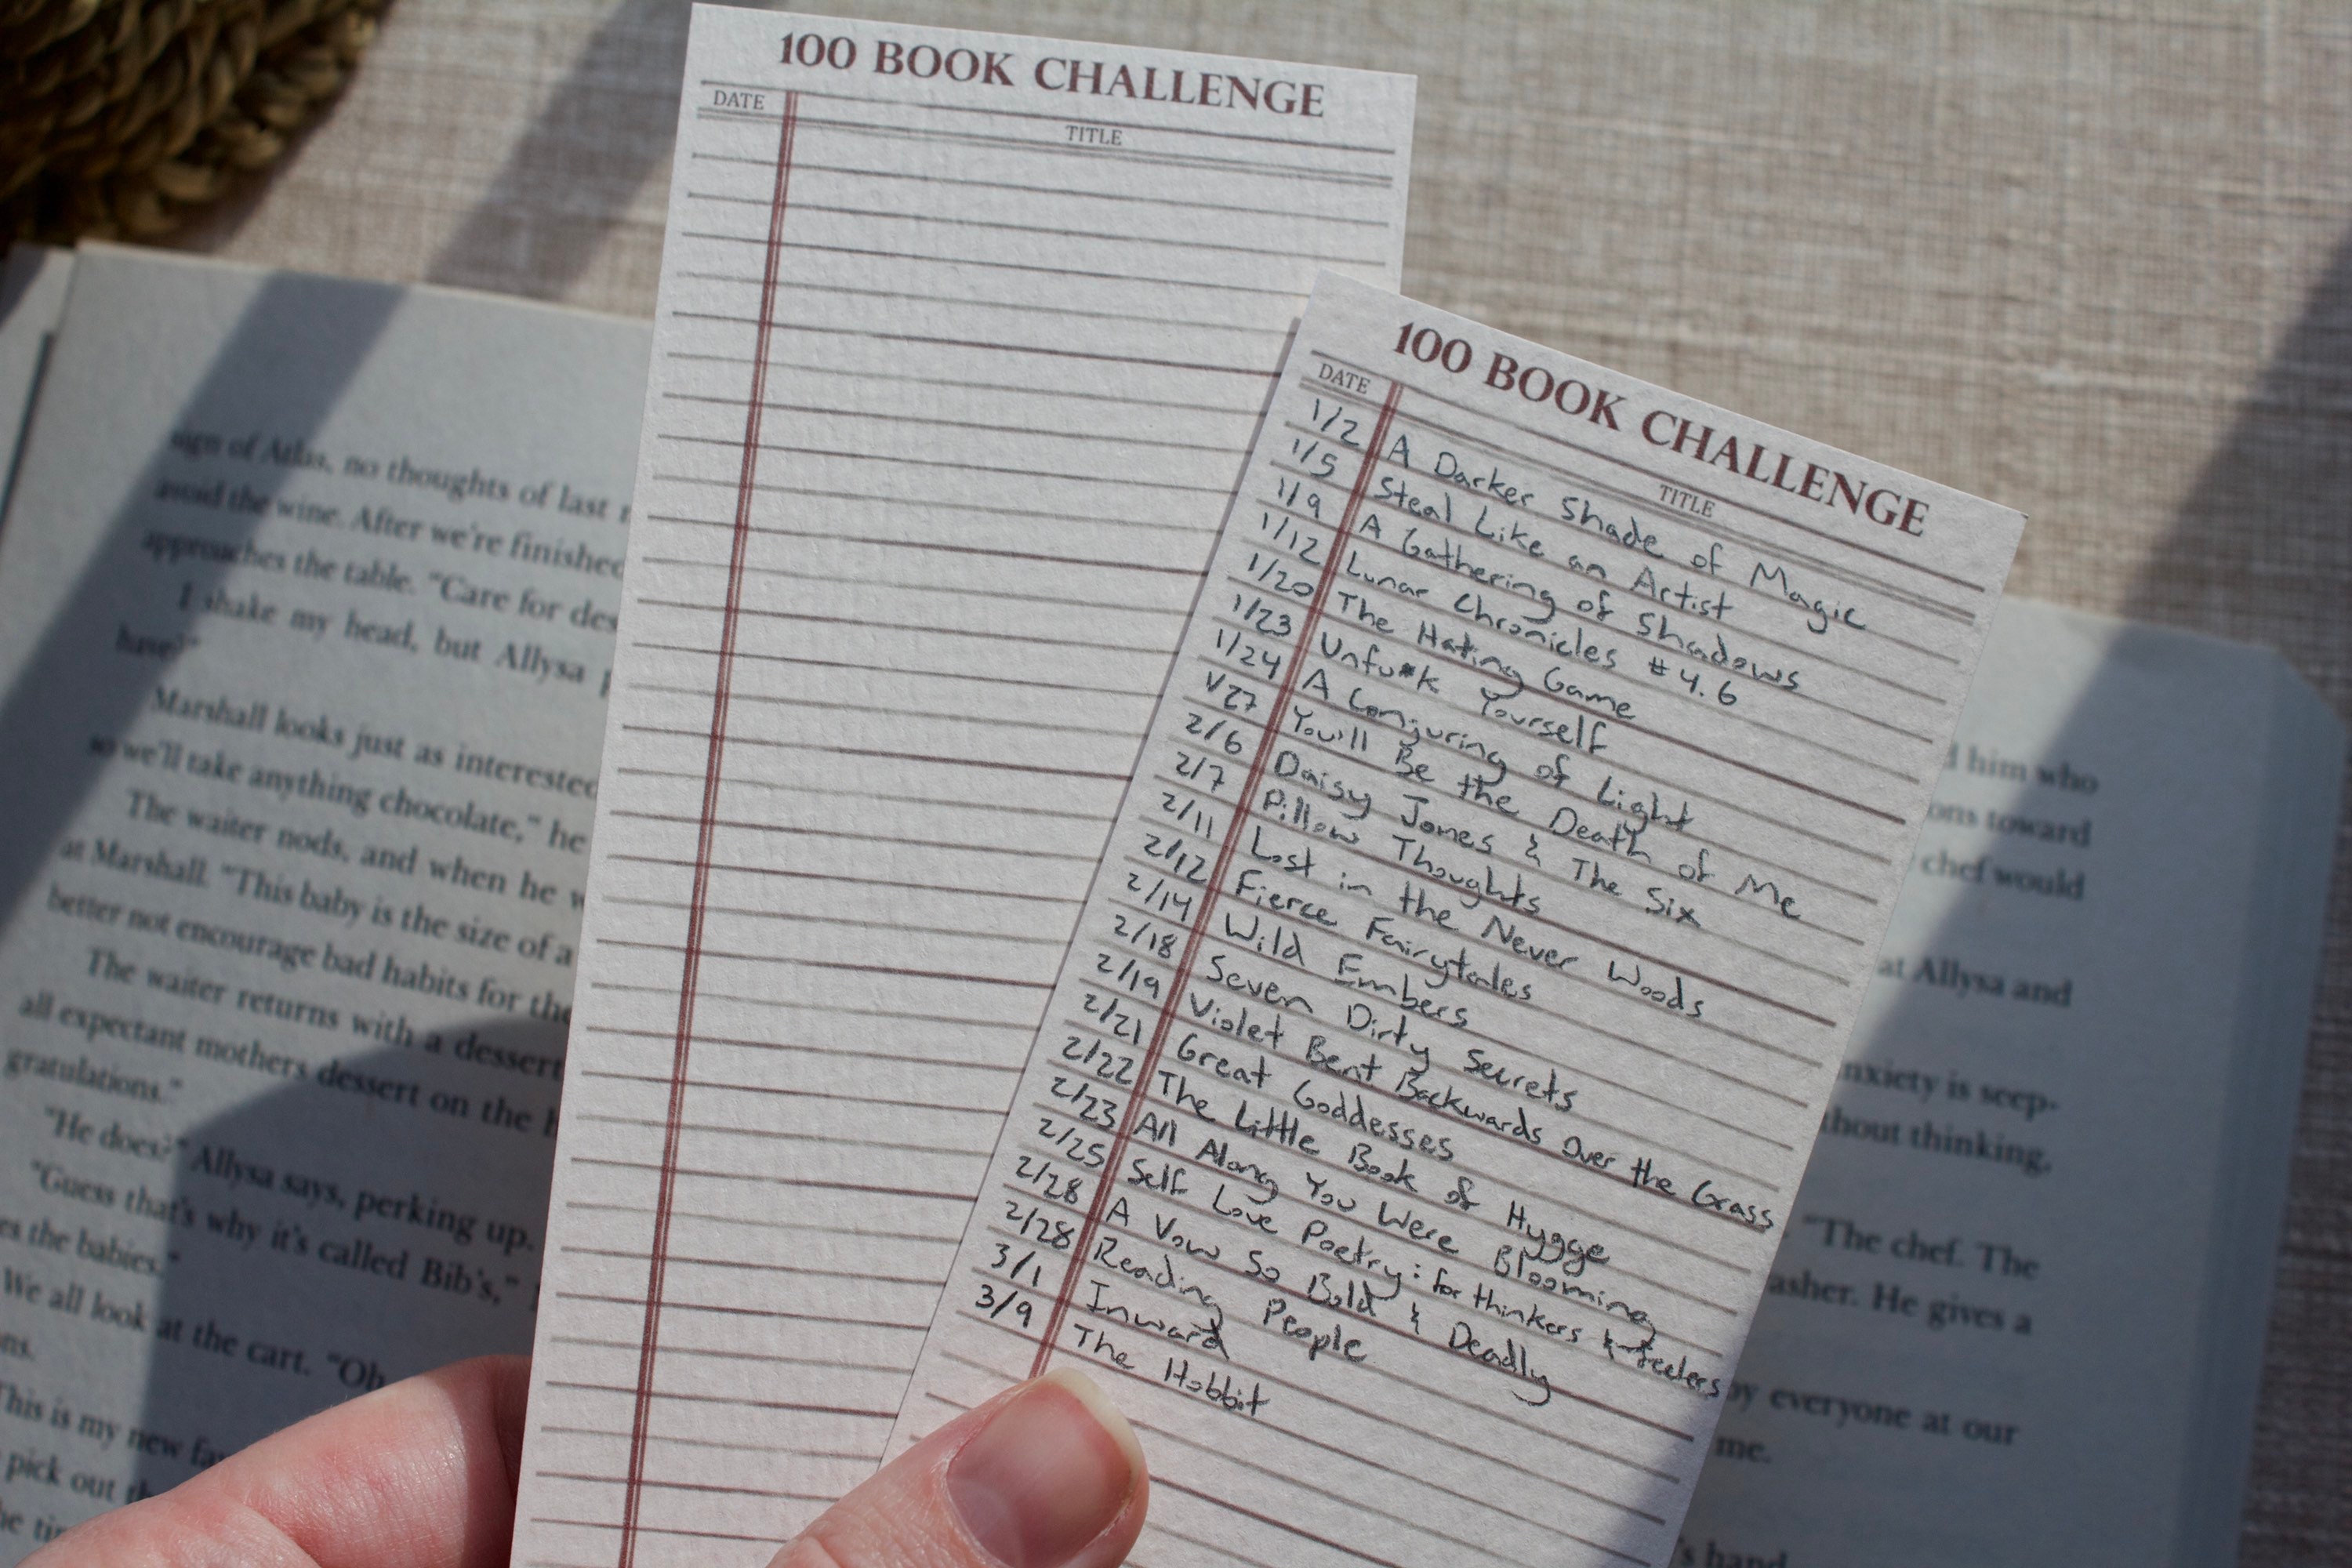 100 BOOK CHALLENGE
DATE TITLE
100 BOOK CHALLENGE
DATE TITLE
1/2 A Darker Shade of Magic
1/5 Steal Like an Artist
1/9 A Gathering of Shadows
1/12 Lunar Chronicles #4.6
1/20 The Hating Game
1/23 Unfu*k Yourself
1/24 A Conjuring of Light
1/27 You'll Be the Death of Me
2/6 Daisy Jones & The Six
2/7 Pillow Thoughts
2/11 Lost in the Never Woods
2/12 Fierce Fairytales
2/14 Wild Embers
2/18 Seven Dirty Secrets
2/19 Violet Bent Backwards Over the Grass
2/21 Great Goddesses
2/22 The Little Book of Hygge
2/23 All Along You Were Blooming
2/25 Self Love Poetry: for thinkers & feelers
2/28 A Vow So Bold & Deadly
2/28 Reading People
3/1 Inward
3/9 The Hobbit
sign of Atlas, no thoughts of last
avoid the wine. After we're finished
approaches the table. "Care for
I shake my head, but Allysa
have?"
Marshall looks just as interested
so we'll take anything chocolate," he
The waiter nods, and when he
at Marshall. "This baby is the size of a
better not encourage bad habits for the
The waiter returns with a dessert
all expectant mothers dessert on the
gratulations."
"He does?" Allysa says, perking up.
"Guess that's why it's called Bib's,"
the babies."
We all look at the cart. "Oh
This is my new
pick out
him who
toward
chef would
at Allysa and
anxiety is seep-
thout thinking,
"The chef. The
asher. He gives a
by everyone at our
me.
's hand